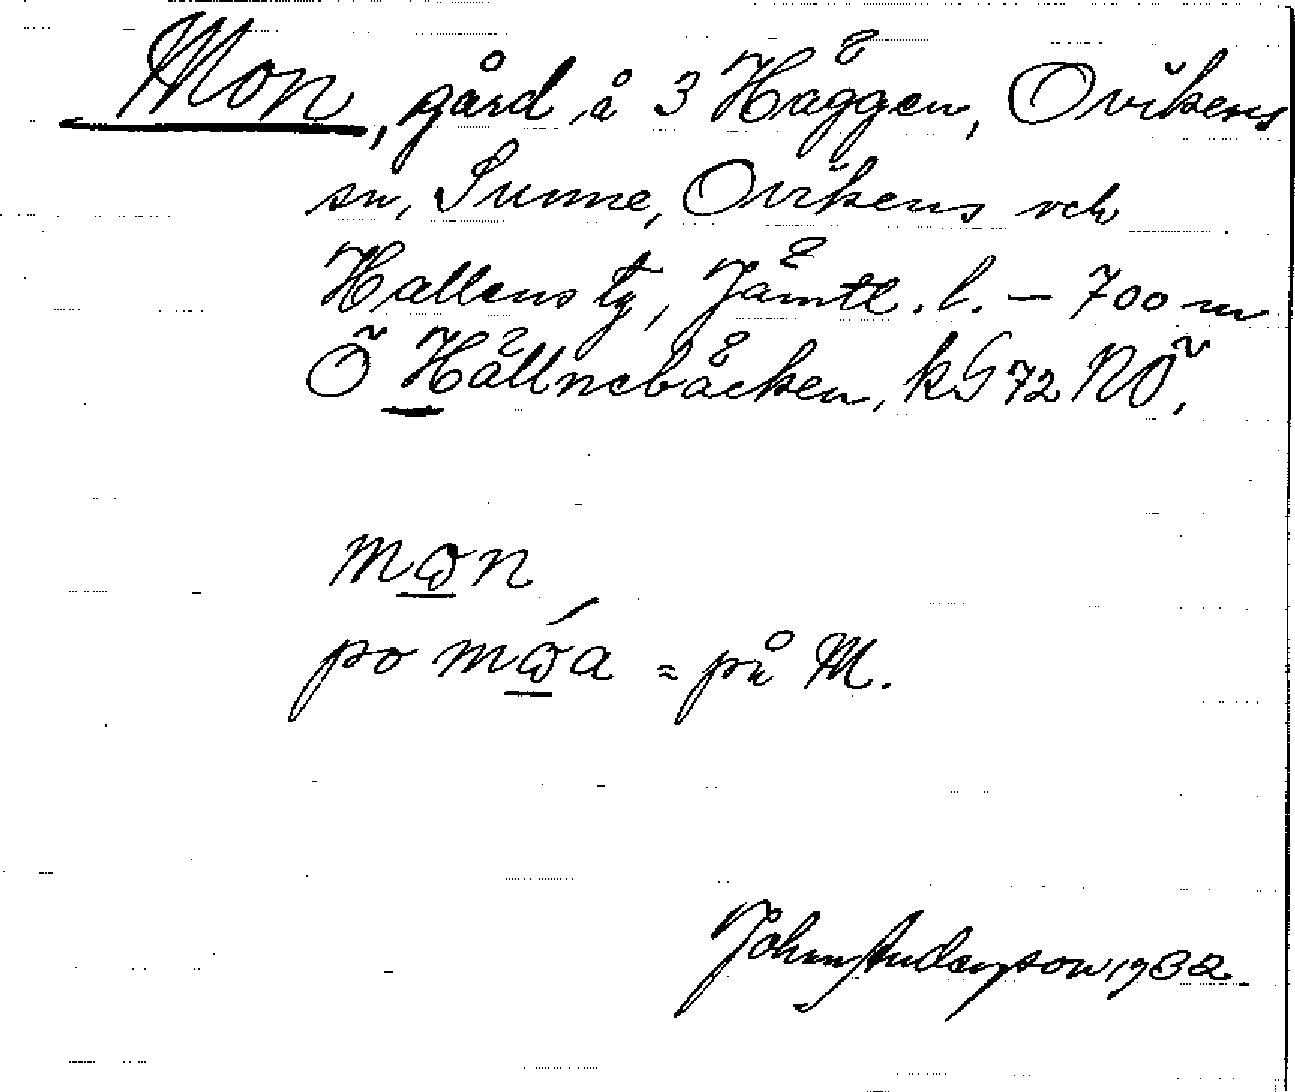 Mon, gård å 3 Häggen, Ovikens
sn, Sunne, Ovikens och
Hallens tg, Jämtl. l. – 700 m
Ö Hällnebäcken, kG 72 NÖ.
mω̱n
po mώ̱a = på M.
John Anderson 1932